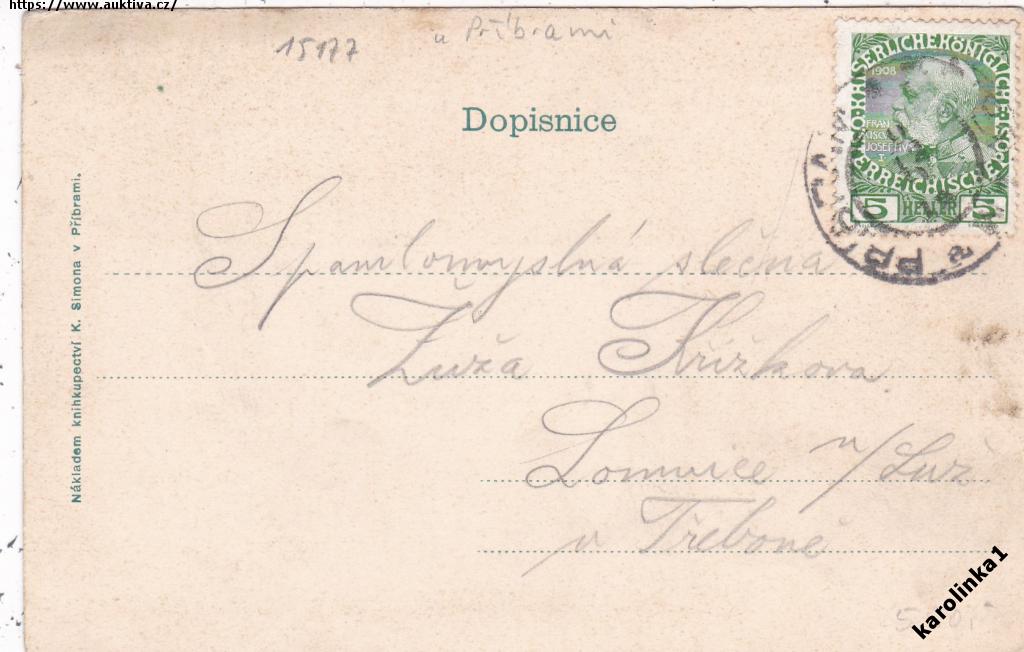 https://www.auktiva.cz/
15177
u Příbrami
Dopisnice
KAISERLICHE KÖNIGLICHE
ÖSTERREICHISCHE
1908
FRAN
CISCVS
JOSEPHVS
I
5 HELLER 5
PR
Spanilomyslná slečna
Zuža Křížkova
Lomnice n/Luž
u Třeboně
Nákladem knihkupectví K. Simona v Příbrami.
karolinka1